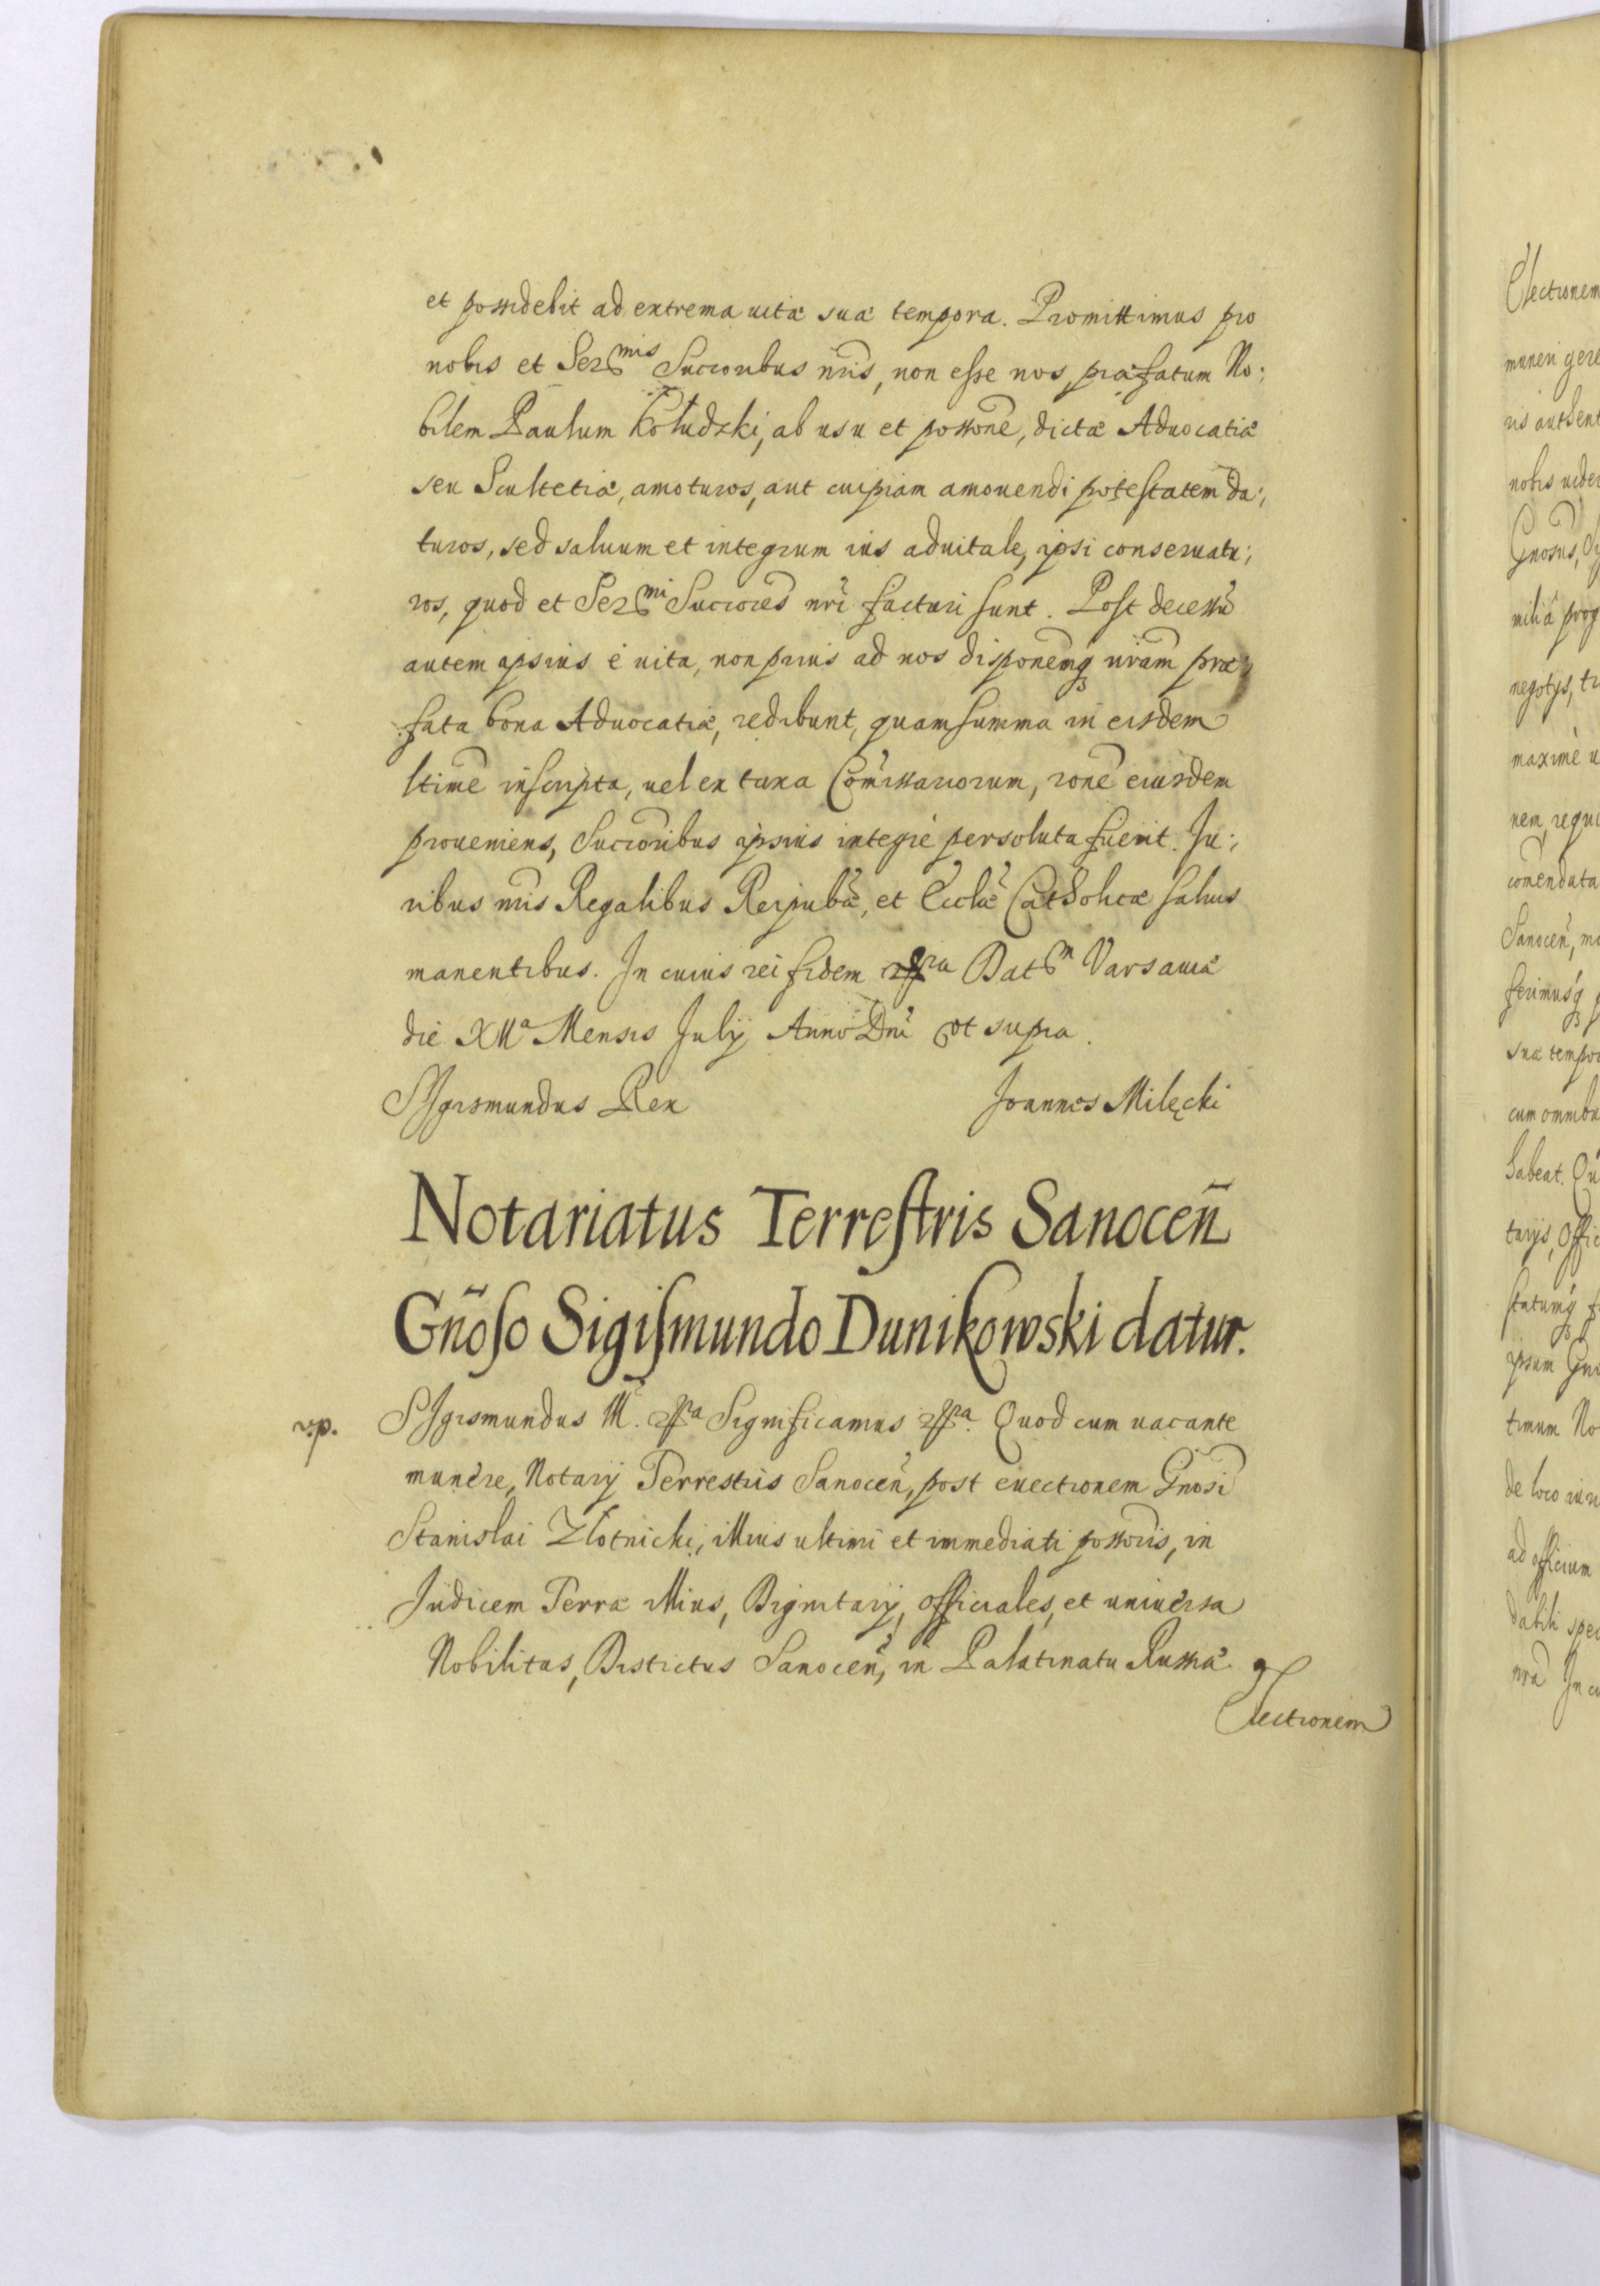 et possidebit ad extrema uitæ suæ tempora. Promittimus pro
nobis et Ser mis Succoribus nris, non esse nos præfatum No:
bilem Paulum Kołudzki, ab usu et possone, dictæ Aduocatiæ
seu Scultetiæ, amoturos, aut cuipiam amouendi potestatem da:,
turos, sed saluum et integrum ius aduitale, ipsi conseruatu:,
ros, quod et Ser mi Succores nri facturi sunt. Post decessū
autem ipsius è uita, non prius ad nos disponemq nram præ:,
fata bona Aduocatiæ, redibunt, quam summa in eisdem
ltime inscripta, uel ex taxa Comissariorum, rone eiusdem
proueniens, Succoribus ipsius integrè persoluta fuerit. Ju:,
ribus nris Regalibus Reipubæ, et Ecclæ Catholicæ saluis
manentibus. In cuius rei fidem Dat Varsauiæ
die XIIa Mensis July Anno Dni vt supra.
SIgismundus Rex Joannes Milęcki
Notariatus Terrestris Sanoceñ
Gñoso Sigismundo Dunikowski datur.
SIgismundus III. Significamus Quod cum uacante
munere, Notarij Terrestris Sanoceñ, post euectionem Gnosi
Stanislai Złotnicki, illius ultimi et immediati possoris, in
Judicem Terræ illius, Dignitarij, officiales, et uniuersa
Nobilitas, Districtus Sanoceñ, in Palatinatu Russiæ
Electionem
Electionem
muneri gere
ris authent
nobis uider
Gnosus,
milia prog
negotys, tr
maximè u
nem, requi
comendata
Sanoceñ, mo
ferimusq
suæ tempor
cum omnibu
habeat. Qu
tarijs, offic
statumq f
ipsum Gn
timum No
de loco iur
ad officium
dabili spec
nra In cu